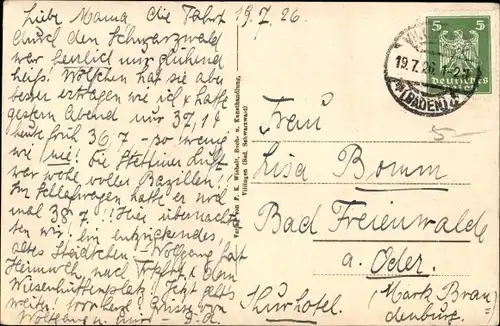 Liebe Mama die Fahrt 19.7.26.
durch den Schwarzwald
war herrlich nur glühend
heiß. Wölfchen hat sie aber
besser ertragen wie ich & hatte
gestern Abend nur 37,1 &
heute früh 36,7 - so wenig
wie nie! Die Luft
war wohl voller Bazillen!!
Im Schlafwagen hatte er noch
mal 38,7!! Hier übernach-
ten wir! Ein entzückendes,
altes Städtchen - Wolfgang hat
Heimweh, nach & dem
Jetzt geht's
weiter, von
Wolfgang u. mir -
Villingen (Bad. Schwarzwald)
5 5
Deutsches Reich
19.7.26
(BADEN)
Frau
Lisa Bomm
Bad Freienwalde
a. Oder.
(Mark Bran
denburg.
Kurhotel.
5-